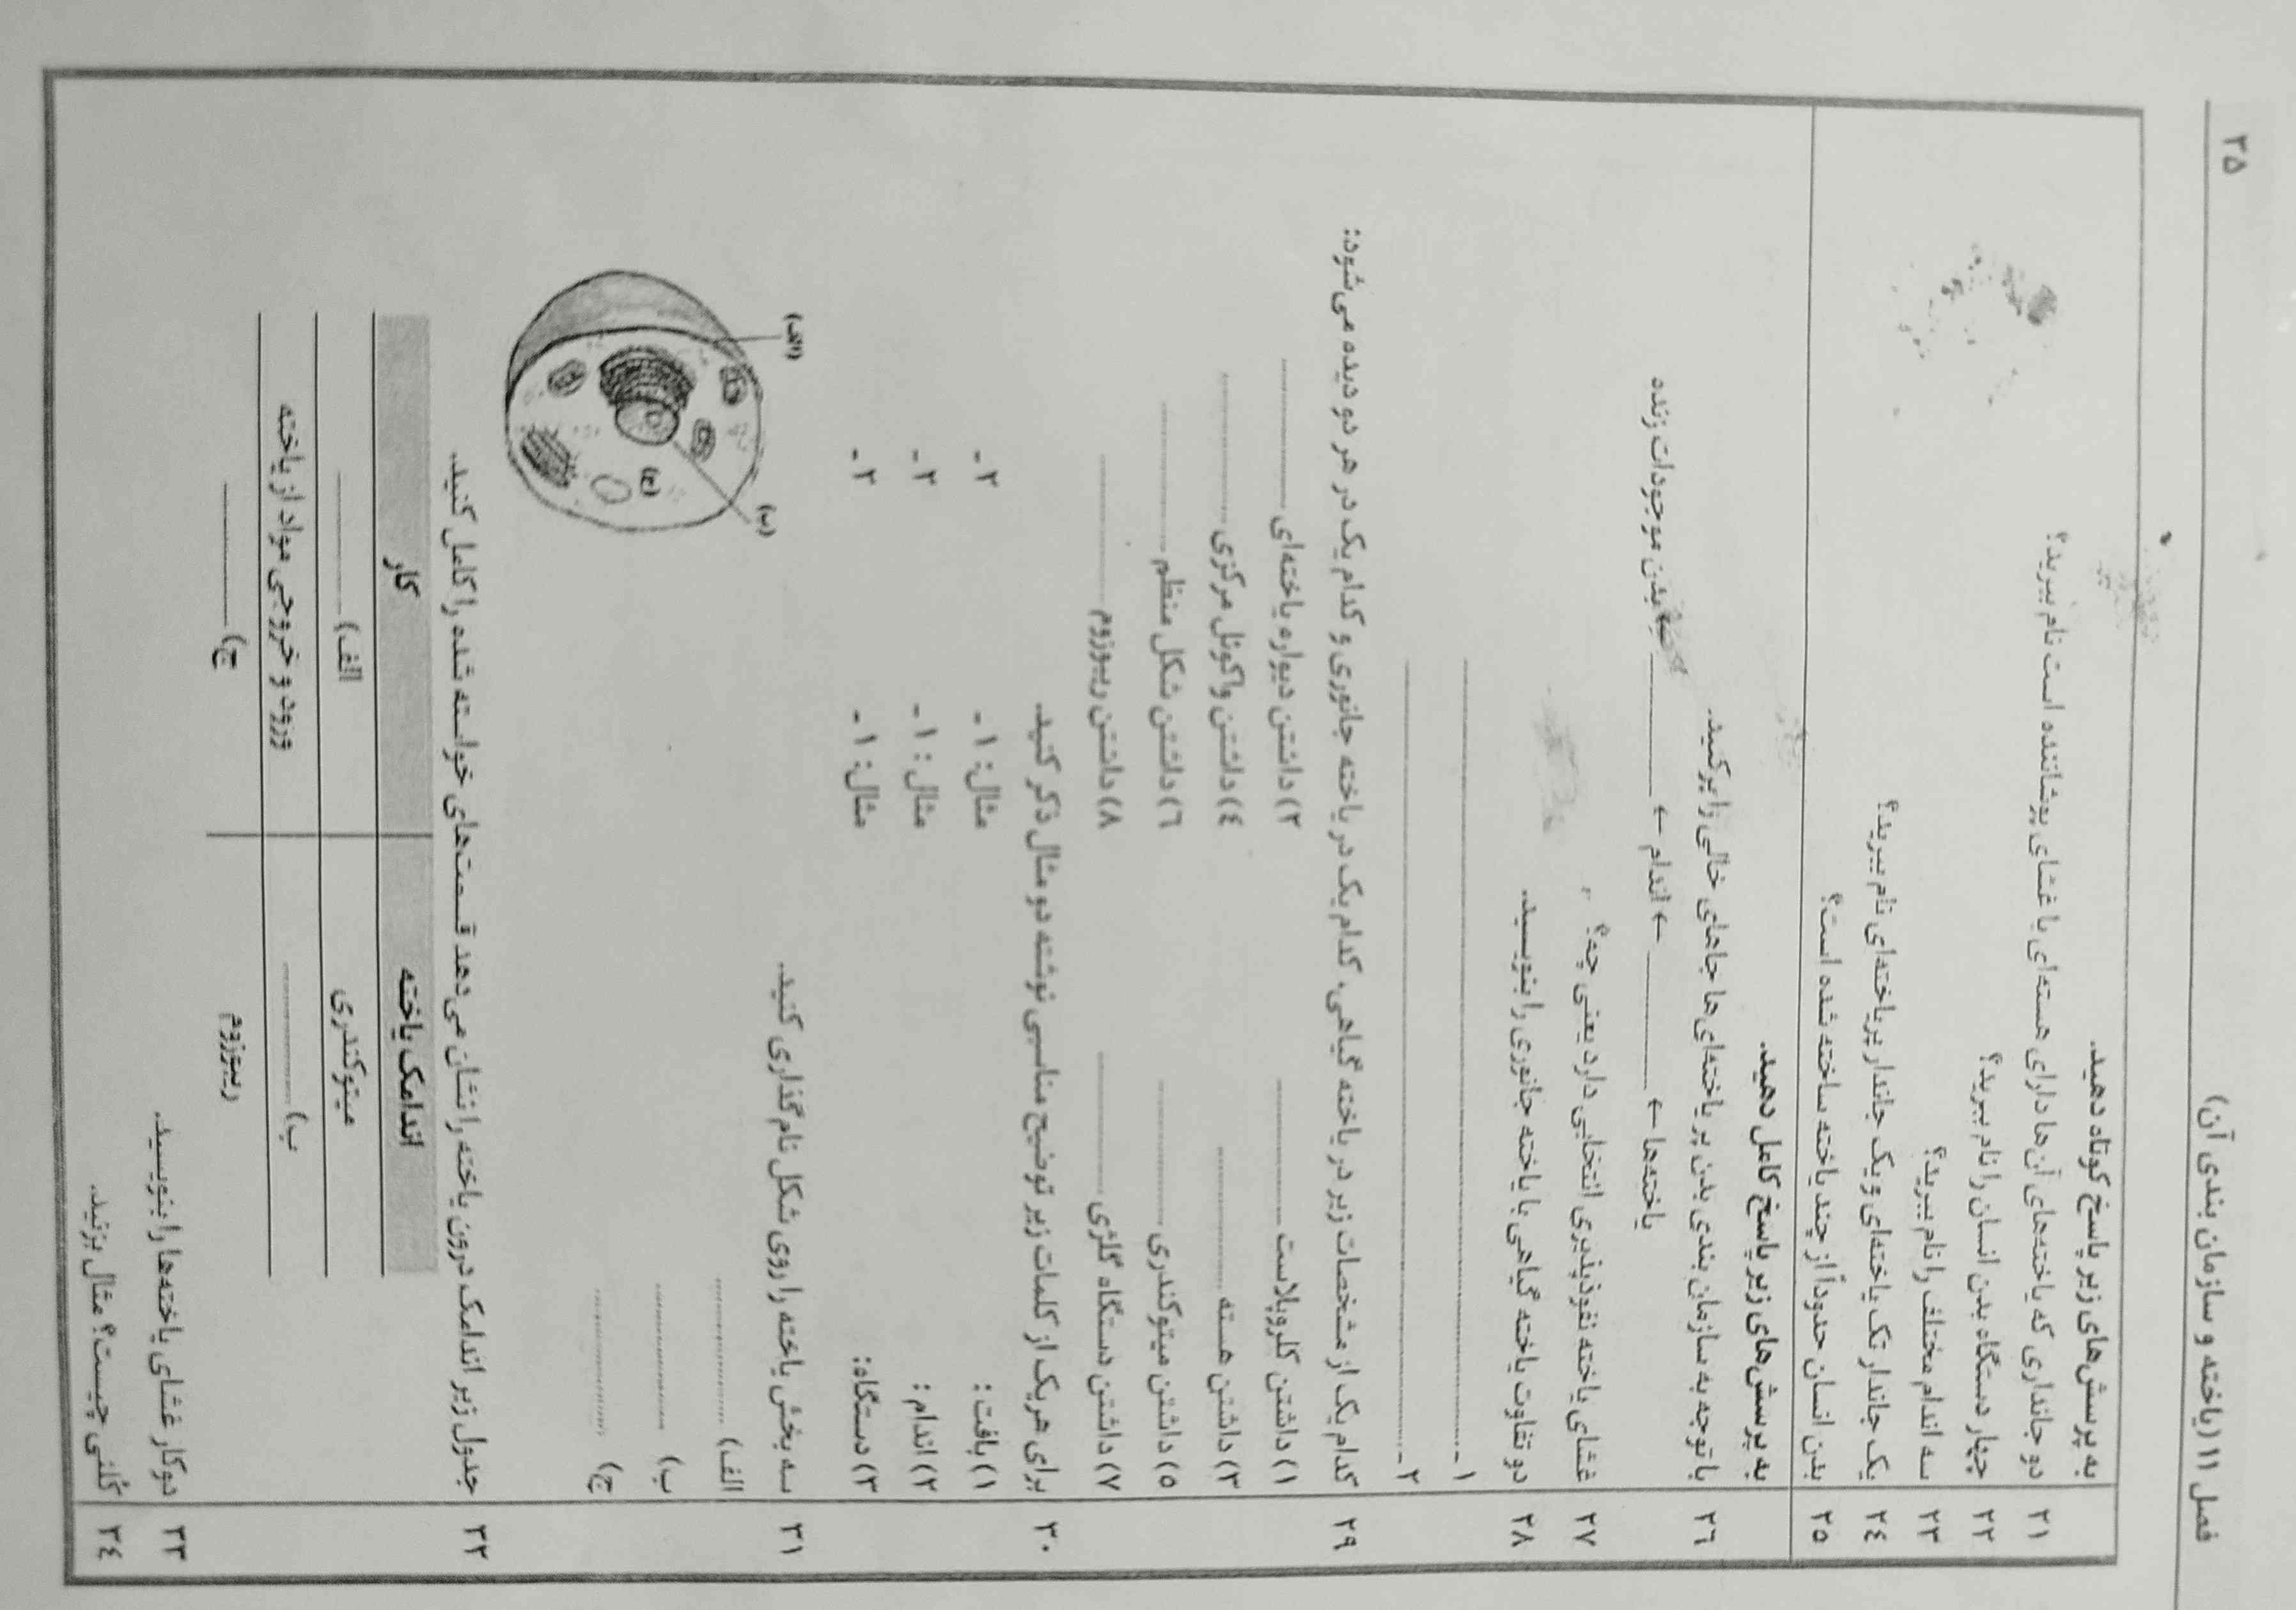 فصل ۱۱ (یاخته و سازمان بندی آن)
۳۵
به پرسش‌های زیر پاسخ کوتاه دهید.
۲۱ دو جانداری که یاخته‌های آن‌ها دارای هسته‌ای با غشای پوشاننده است نام ببرید؟
۲۲ چهار دستگاه بدن انسان را نام ببرید؟
۲۳ سه اندام مختلف را نام ببرید؟
۲۴ یک جاندار تک یاخته‌ای و یک جاندار پریاخته‌ای نام ببرید؟
۲۵ بدن انسان حدوداً از چند یاخته ساخته شده است؟
به پرسش‌های زیر پاسخ کامل دهید.
۲۶ با توجه به سازمان بندی بدن پر یاخته‌ای ها جاهای خالی را پر کنید.
یاخته‌ها ← .......... ← اندام ← .......... ← بدن موجودات زنده
۲۷ غشای یاخته نفوذپذیری انتخابی دارد یعنی چه؟
۲۸ دو تفاوت یاخته گیاهی با یاخته جانوری را بنویسید.
۱- ..........
۲- ..........
۲۹ کدام یک از مشخصات زیر در یاخته گیاهی، کدام یک در یاخته جانوری و کدام یک در هر دو دیده می‌شود:
۱) داشتن کلروپلاست .......... ۲) داشتن دیواره یاخته‌ای ..........
۳) داشتن هسته .......... ۴) داشتن واکوئل مرکزی ..........
۵) داشتن میتوکندری .......... ۶) داشتن شکل منظم ..........
۷) داشتن دستگاه گلژی .......... ۸) داشتن ریبوزوم ..........
۳۰ برای هریک از کلمات زیر توضیح مناسبی نوشته دو مثال ذکر کنید.
۱) بافت: مثال: ۱- ۲-
۲) اندام: مثال: ۱- ۲-
۳) دستگاه: مثال: ۱- ۲-
۳۱ سه بخش یاخته را روی شکل نام گذاری کنید.
الف) ..........
ب) ..........
ج) ..........
الف)
ب)
ج)
۳۲ جدول زیر اندامک درون یاخته را نشان می‌دهد قسمت‌های خواسته شده را کامل کنید.
اندامک یاخته کار
میتوکندری الف) ..........
ب) .......... ورود و خروجی مواد از یاخته
ریبوزوم ج) ..........
۳۳ دو کار غشای یاخته‌ها را بنویسید.
۳۴ کُلنی چیست؟ مثال بزنید.